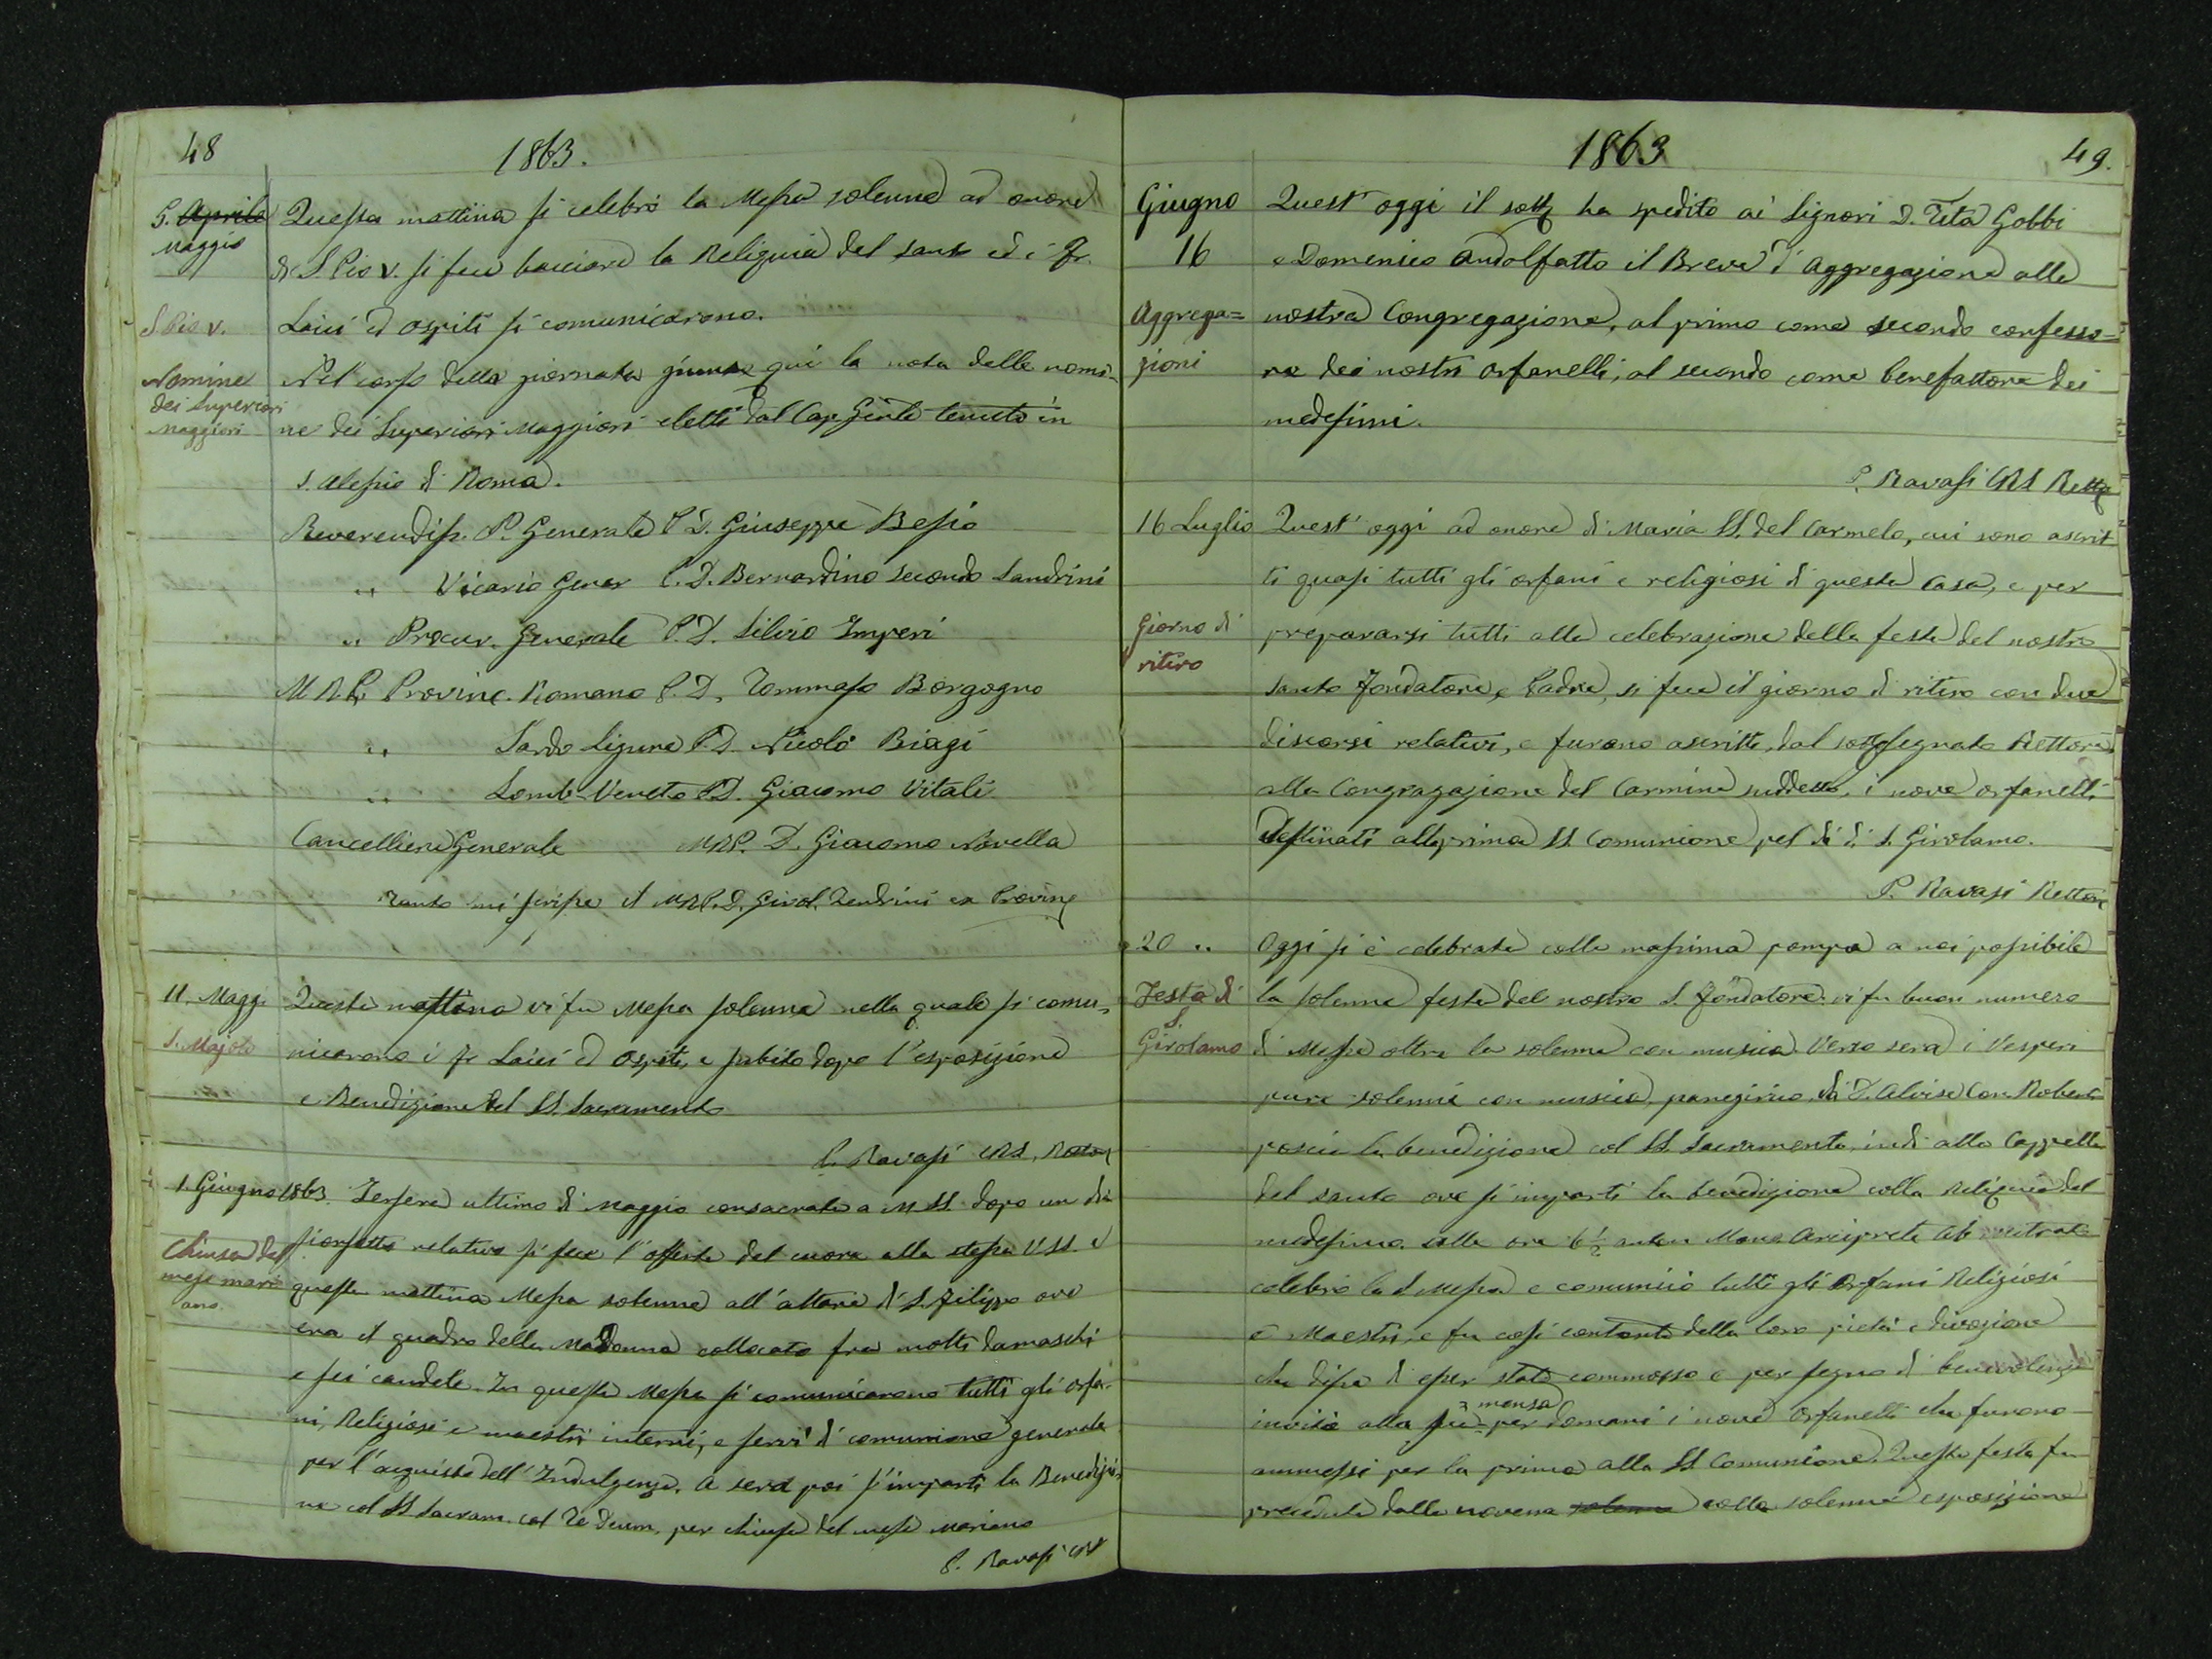 48
1863.
5. Aprile Questa mattina si celebrò la Messa solenne ad onore
Maggio
di S. Pio V. si fece bacciare la Reliquia del santo ed i Fr.
S. Pio V. Laici ed Ospiti si comunicarono.
Nomine Nel corso della giornata giunse quì la nota delle nomi-
dei Superiori
Maggiori ne dei Superiori Maggiori eletti dal Cap. Genle tenuto in
S. Alessio di Roma.
Reverendiss. P. Generale P. D. Giuseppe Besio
" Vicario Gener P. D. Bernardino Secondo Sandrini
" Procur. Generale P. D. Silvio Imperi
M. R. P. Provinc. Romano P. D. Tommaso Borgogno
" Sardo Ligure P. D. Nicolò Biagi
" Lomb-Veneto P. D. Giacomo Vitali
Cancelliere Generale M.R.P. D. Giacomo Novella
Tanto mi scrisse il M.R.P.D. Girol. Zendrini ex Provinc
11. Maggi Questa mattina vi fu Messa solenne nella quale si comu-
S. Majolo nicarono i Fr Laici ed Ospiti, e subito dopo l'esposizione
e Benedizione del SS. Sacramento
P. Ravasi CRS. Rettor
1. Giugno 1863. Jersera ultimo di Maggio consacrato a M SS. dopo un di-
Chiusa del fioretto relativo si fece l'offerta del cuore alla stessa V SS. e
mese mari questa mattina Messa solenne all'altare di S. Filippo ove
ano.
era il quadro della Madonna collocato fra molti damaschi
e sei candele. In questa Messa si comunicarono tutti gli orfa-
ni, Religiosi e maestri interni, e servì di comunione generale
per l'acquisto dell'Indulgenza. A sera poi s'impartì la Benedizio-
ne col SS Sacram. col Te Deum, per chiusa del mese Mariano
P. Ravasi CRS
1863
49.
Giugno Quest'oggi il sott ha spedito ai Signori D. Tita Gobbi
16 e Domenico Andolfatto il Breve d'Aggregazione alla
Aggrega= nostra Congregazione, al primo come secondo confesso-
zioni re dei nostri orfanelli, al secondo come benefattore dei
medesimi.
P. Ravasi CRS Rett
16 Luglio Quest'oggi ad onore di Maria SS. del Carmelo, cui sono ascrit
ti quasi tutti gli orfani e religiosi di questa Casa, e per
Giorno di prepararsi tutti alla celebrazione della festa del nostro
ritiro
Santo Fondatore, e Padre, si fece il giorno di ritiro con due
discorsi relativi, e furono ascritti, dal sottosegnato Rettore
alla Congragazione del Carmine suddetto, i nove orfanelli
destinati alla prima SS. Comunione pel dì di S. Girolamo.
P. Ravasi Rettore
20 " Oggi si è celebrata colla massima pompa a noi possibile
Festa di la solenne festa del nostro S. Fondatore. vi fu buon numero
S.
Girolamo di Messe oltre la solenne con musica. Verso sera i Vesperi
pure solenni con musica, panegirico di D. Alvise Con. Robert
poscia la benedizione col SS. Sacramento indi alla Cappella
del santo ove si impartì la benedizione colla Reliquia del
medesimo. Alle ore 6 1/2 antem Mons. Arciprete Ab. mitrato
celebrò la S. Messa e comunicò tutti gli Orfani Religiosi
e Maestri, e fu così contento della loro pietà e divozione
che disse di esser stato commosso e per segno di benevolenza
mensa
invitò alla per domani i nove Orfanelli che furono
ammessi per la prima alla SS. Comunione. Questa festa fu
preceduta dalla novena solenne colla solenne esposizione